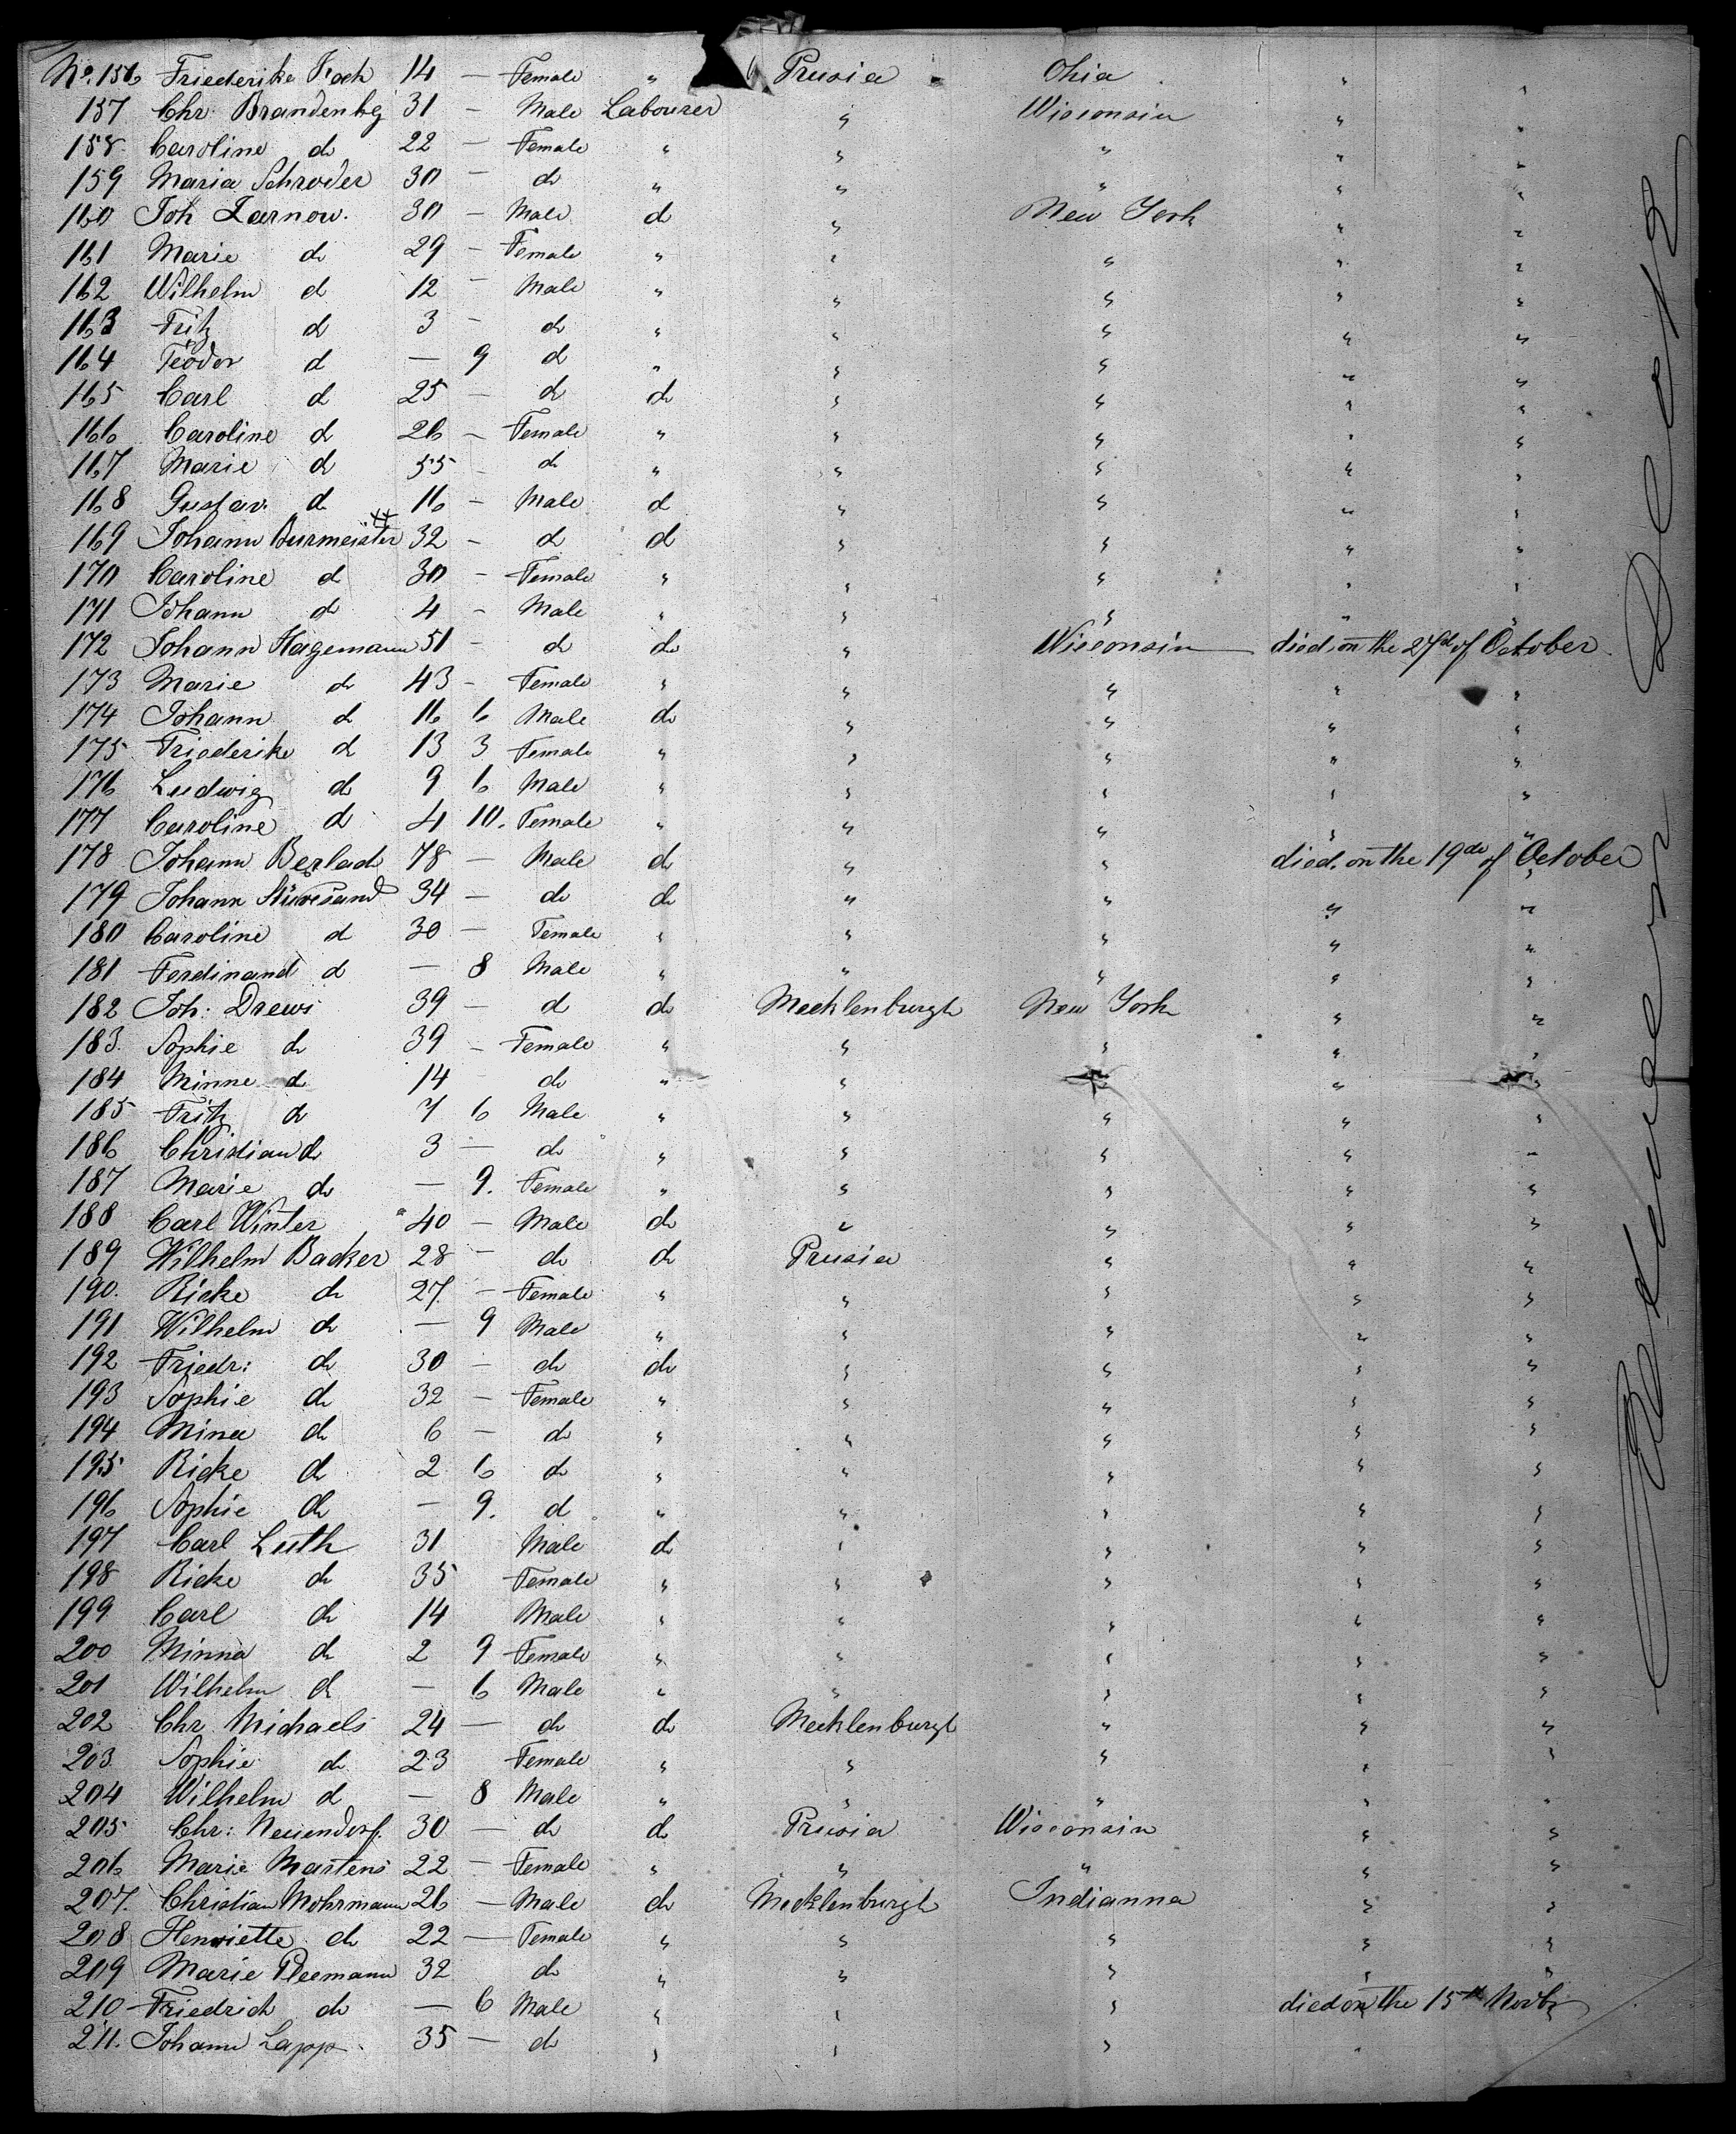 No. 156 Friederike Koch 14 — Female " Prusia Ohia " "
157 Chr. Brandenbg 31 — Male Labourer " Wisconsin " "
158. Caroline do 22 — Female " " " " "
159 Maria Schroder 30 — do " " " " "
160 Joh Zarnow. 30 — Male do " New York " "
161 Marie do 29 — Female " " " " "
162 Wilhelm d 12 — Male " " " " "
163 Fritz d 3 — do " " " " "
164 Teodor d — 9 d " " " " "
165 Carl d 25 — d do " " " "
166 Caroline d 26 — Female " " " " "
167 Marie d 55 — d " " " " "
168 Gustav. d 16 — Male d " " " "
169 Johann Burmeister 32 — d d " " " "
170 Caroline d 30 — Female " " " " "
171 Johann d 4 — Male " " " " "
172 Johann Hagemann 51 — d do " Wisconsin — died on the 27d of October.
173 Marie do 43 — Female " " " " "
174 Johann d 16 6 Male do " " " "
175 Friederike d 13 3 Female " " " " "
176 Ludwig d 9 6 Male " " " " "
177 Caroline d 4 10. Female " " " " "
178 Johann 78 — Male d " " died on the 19de of October
179 Johann Stüwesand 34 — do do " " " "
180 Caroline d 30 — Female " " " " "
181 Ferdinand d — 8 Male " " " " "
182 Joh: Drews 39 — d do Mecklenburgh New York " "
183. Sophie do 39 — Female " " " " "
184 Minne d 14 do " " " " "
185 Fritz do 7 6 Male " " " " "
186 Christian do 3 — do " " " " "
187 Marie do — 9. Female " " " " "
188 Carl Winter 40 — Male do " " " "
189 Wilhelm Backer 28 — do do Prusia " " "
190. Ricke do 27. — Female " " " " "
191 Wilhelm do — 9 Male " " " " "
192 Friedr: do 30 — do do " " " "
193 Sophie do 32 — Female " " " " "
194 Mina do 6 — do " " " " "
195 Ricke do 2 6 do " " " " "
196 Sophie do — 9. d " " " " "
197 Carl Luth 31 Male do " " " "
198 Ricke do 35 Female " " " " "
199 Carl do 14 Male " " " " "
200 Minna do 2 9 Female " " " " "
201 Wilhelm do — 6 Male " " " " "
202 Chr. Michaels 24 — do do Mecklenburgh " " "
203. Sophie do 23 Female " " " " "
204 Wilhelm d — 8 Male " " " " "
205 Chr: Neuendorf. 30 — do do Prusia Wisconsin " "
206 Marie Martens 22 — Female " " " " "
207. Christian Mohrmann 26 — Male do Mecklenburgh Indianna " "
208 Henriette do 22 — Female " " " " "
209 Marie 32 do " " " " "
210 Friedrich do — 6 Male " " " died on the 15th Novbr
211. Johann Lapp. 35 — do " " " "